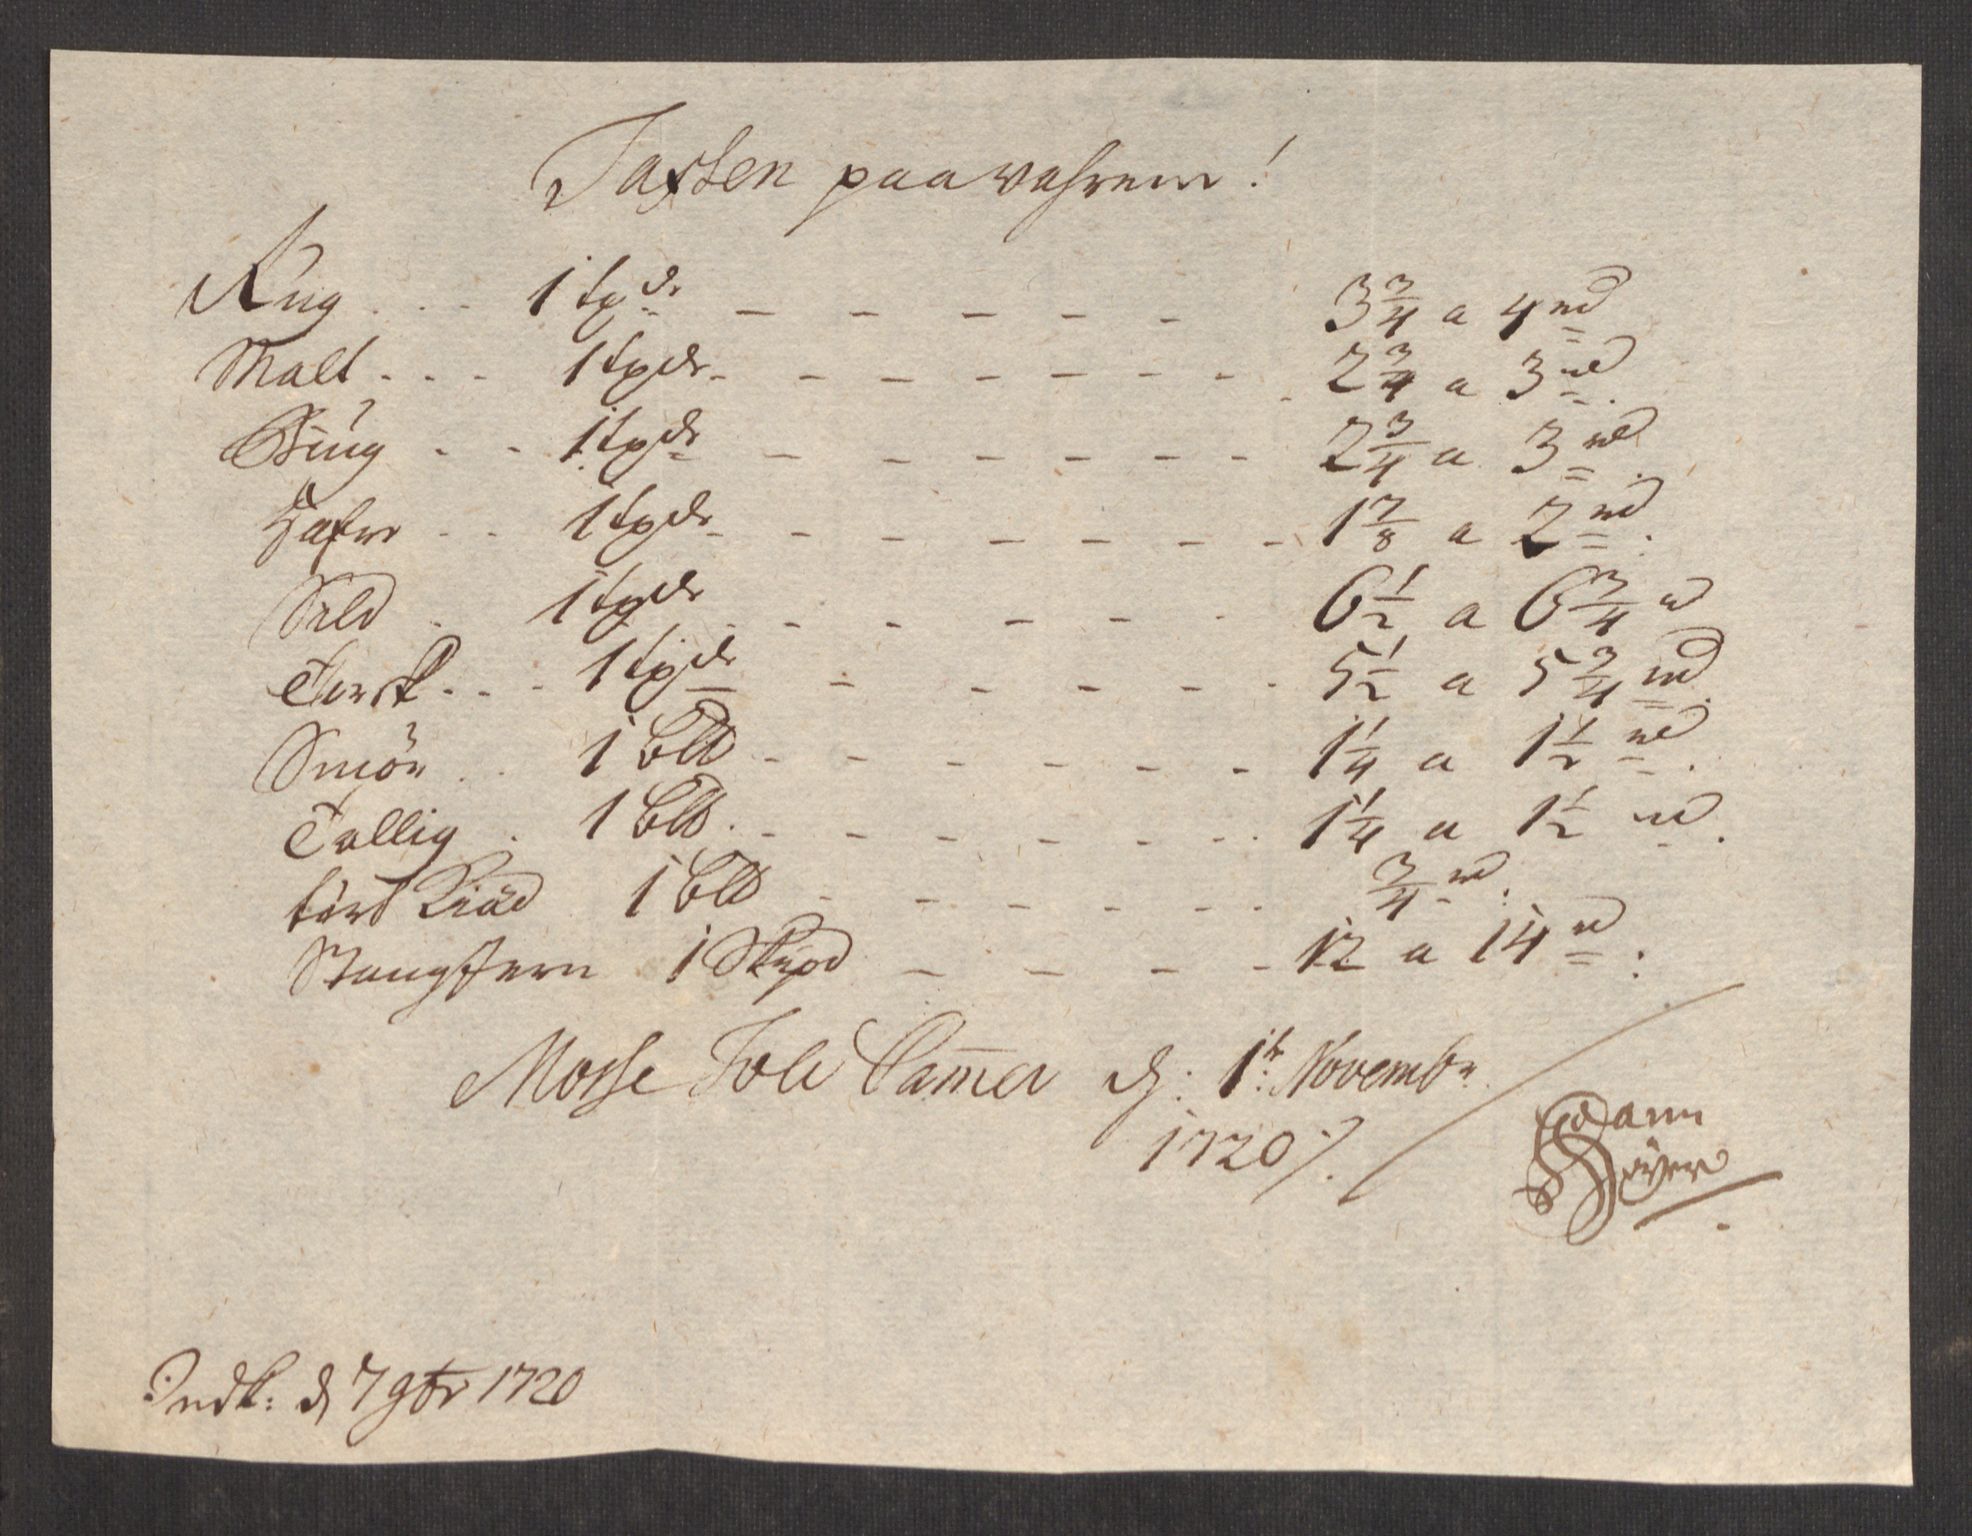 Taxten paa vahrene!
Rug . . . 1 tyde - - - - - - 3¾ a 4 rd
Malt . . . 1 tyde - - - - - - - 2¾ a 3 rd.
Biug - - 1 tyde - - - - - - 2¾ a 3 rd.
Hafre - - 1 tyde - - - - - - - 1⅞ a 2 rd:
Sild . 1 tyde - - - - - 6½ a 6¾ rd
Torsk . . . 1 tyde - - - - - 5½ a 5¾ rd.
Smör . . 1 Bld - - - - - - 1¼ a 1½ rd.
Tallig . 1 Bld. - - - - - - 1¼ a 1½ rd.
tört Kiöd 1 Bld - - - - - ¾ rd.
Stangjern 1 Skpd - - - - 12 a 14 rd:
Mosse Told Cam̅er d: 1te Novembr
1720 /.
Söyer
Indk: d 7 9br 1720